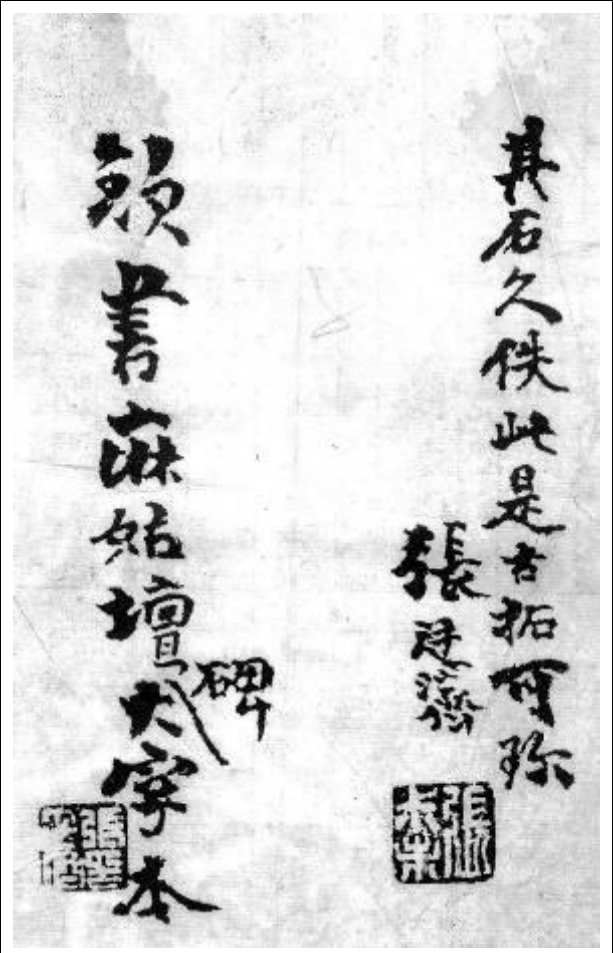 其石久佚此是古拓可珍
張廷濟
顏書麻姑壇碑大字本